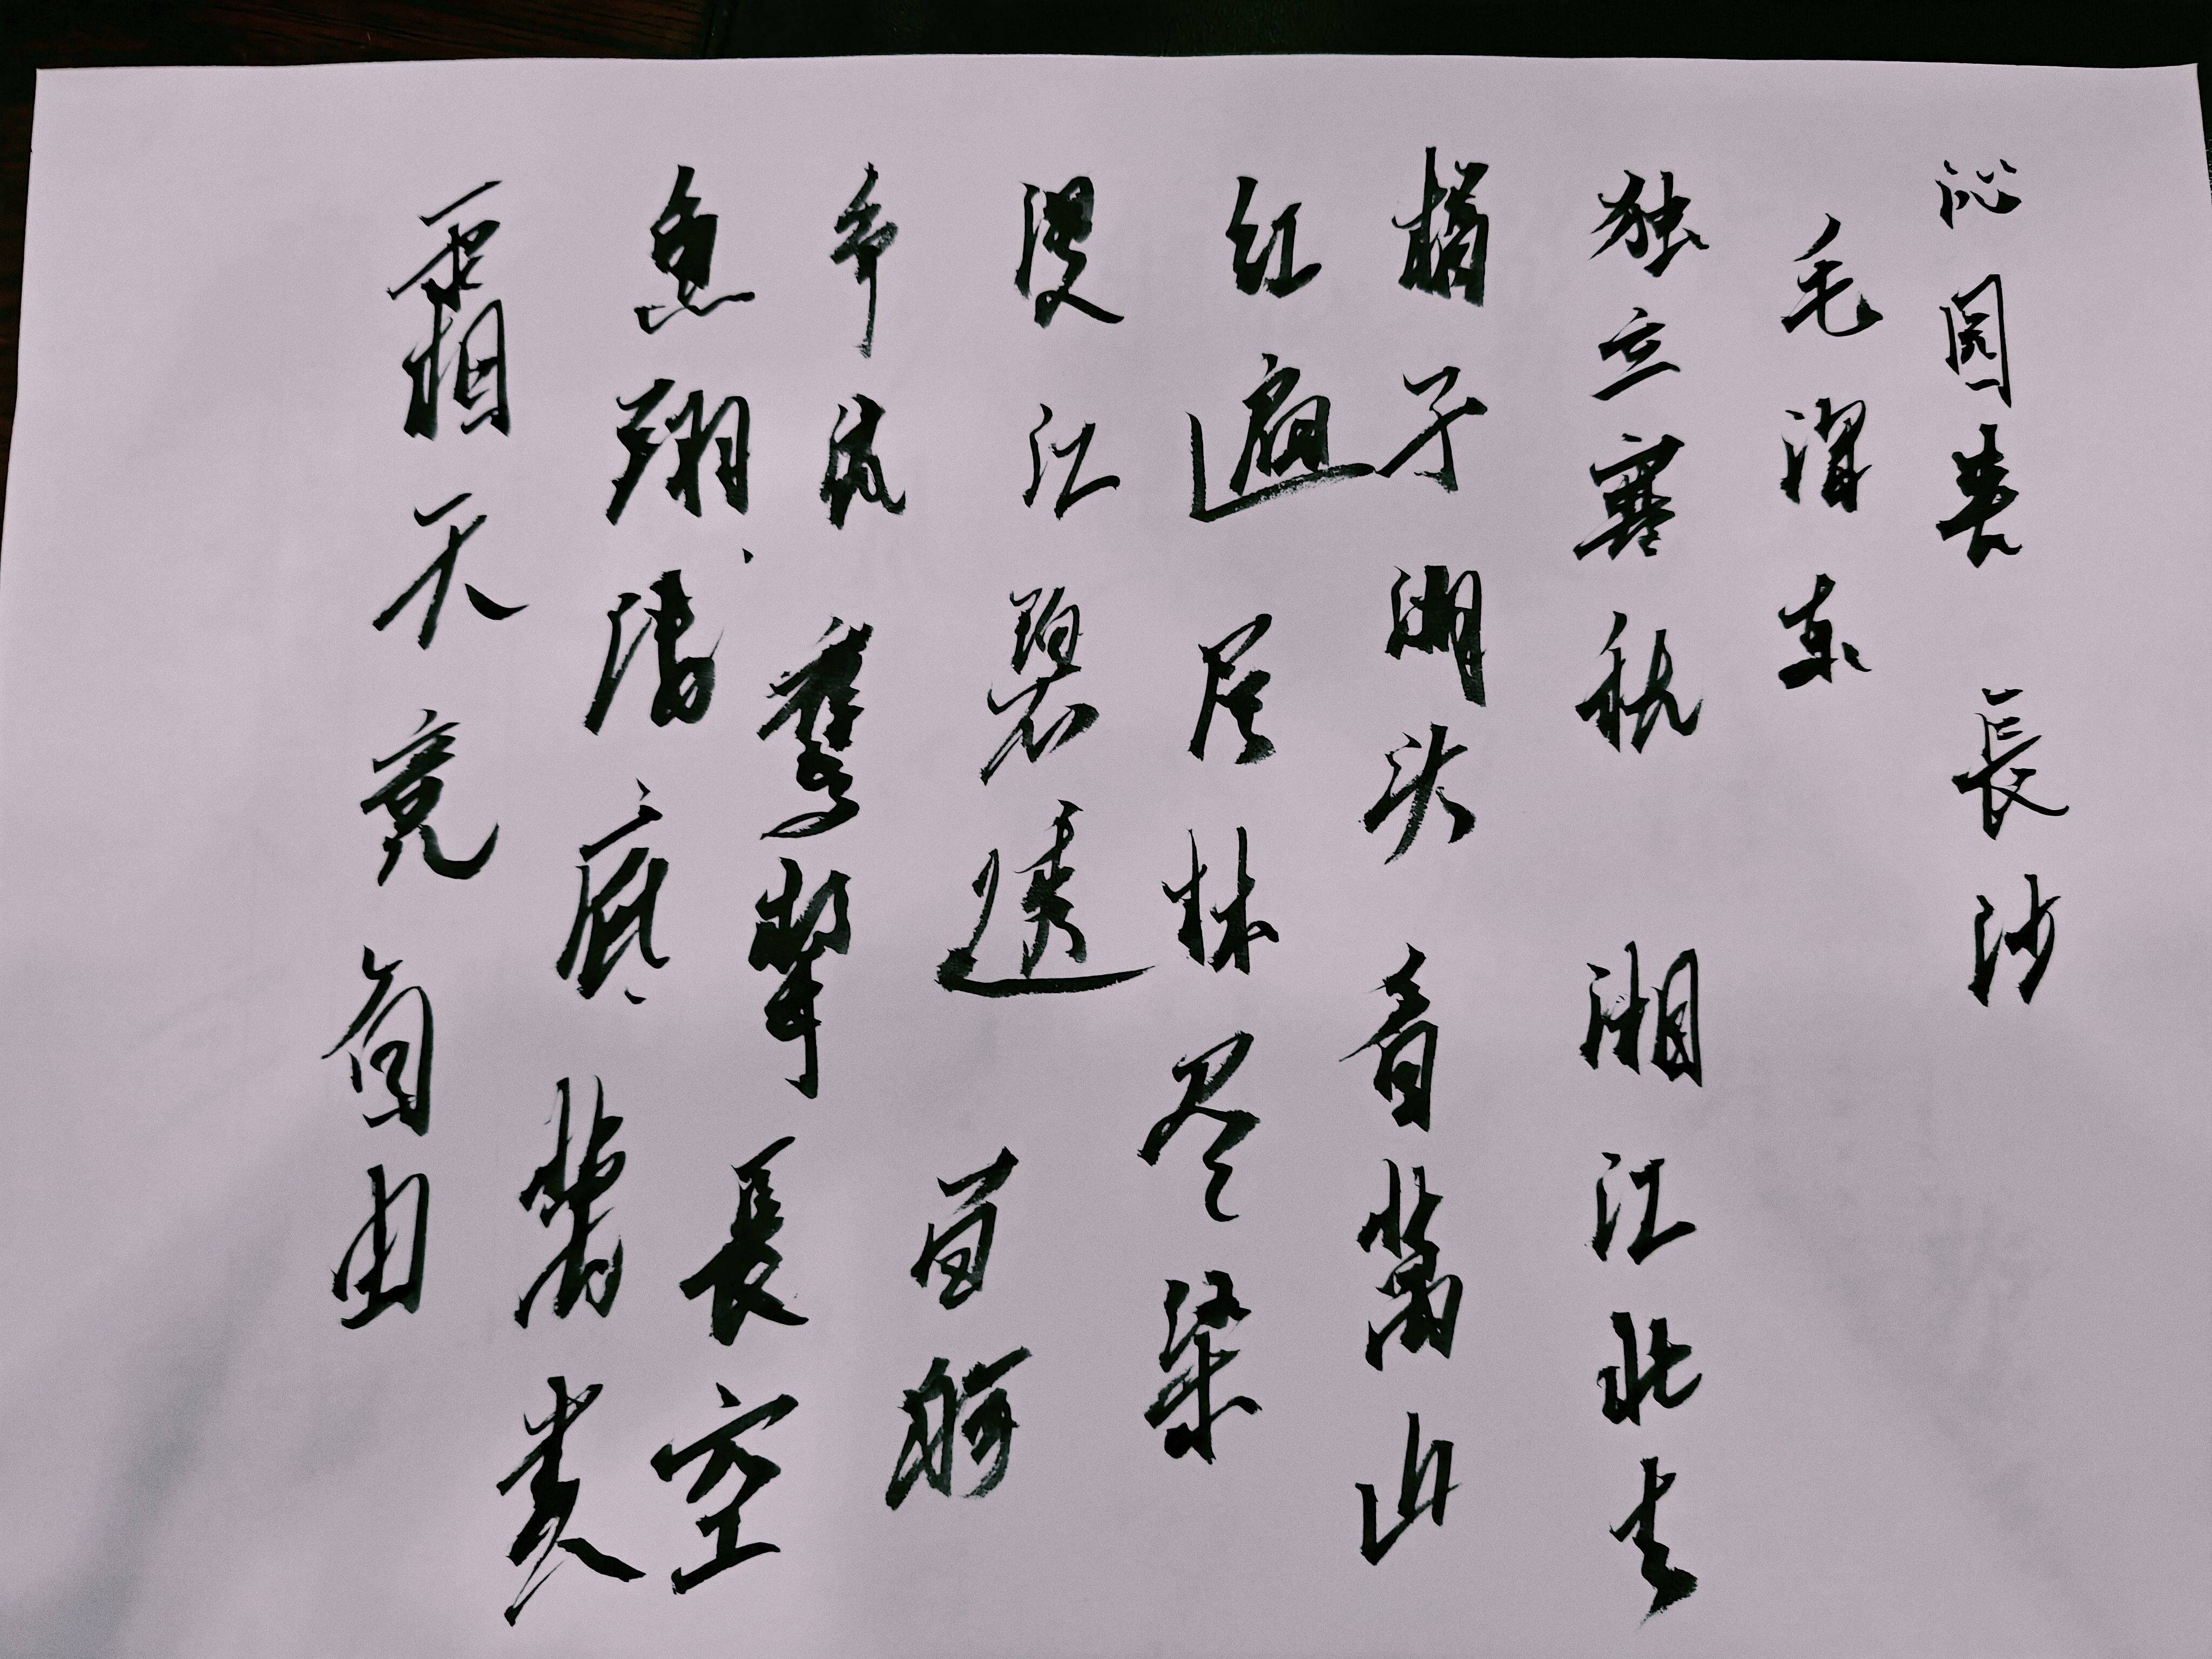 沁园春 長沙
毛泽东
独立寒秋 湘江北去
橘子洲头 看萬山
红遍 层林尽染
漫江碧透 百舸
争流 鹰擊長空
魚翔浅底 萬类
霜天竞自由